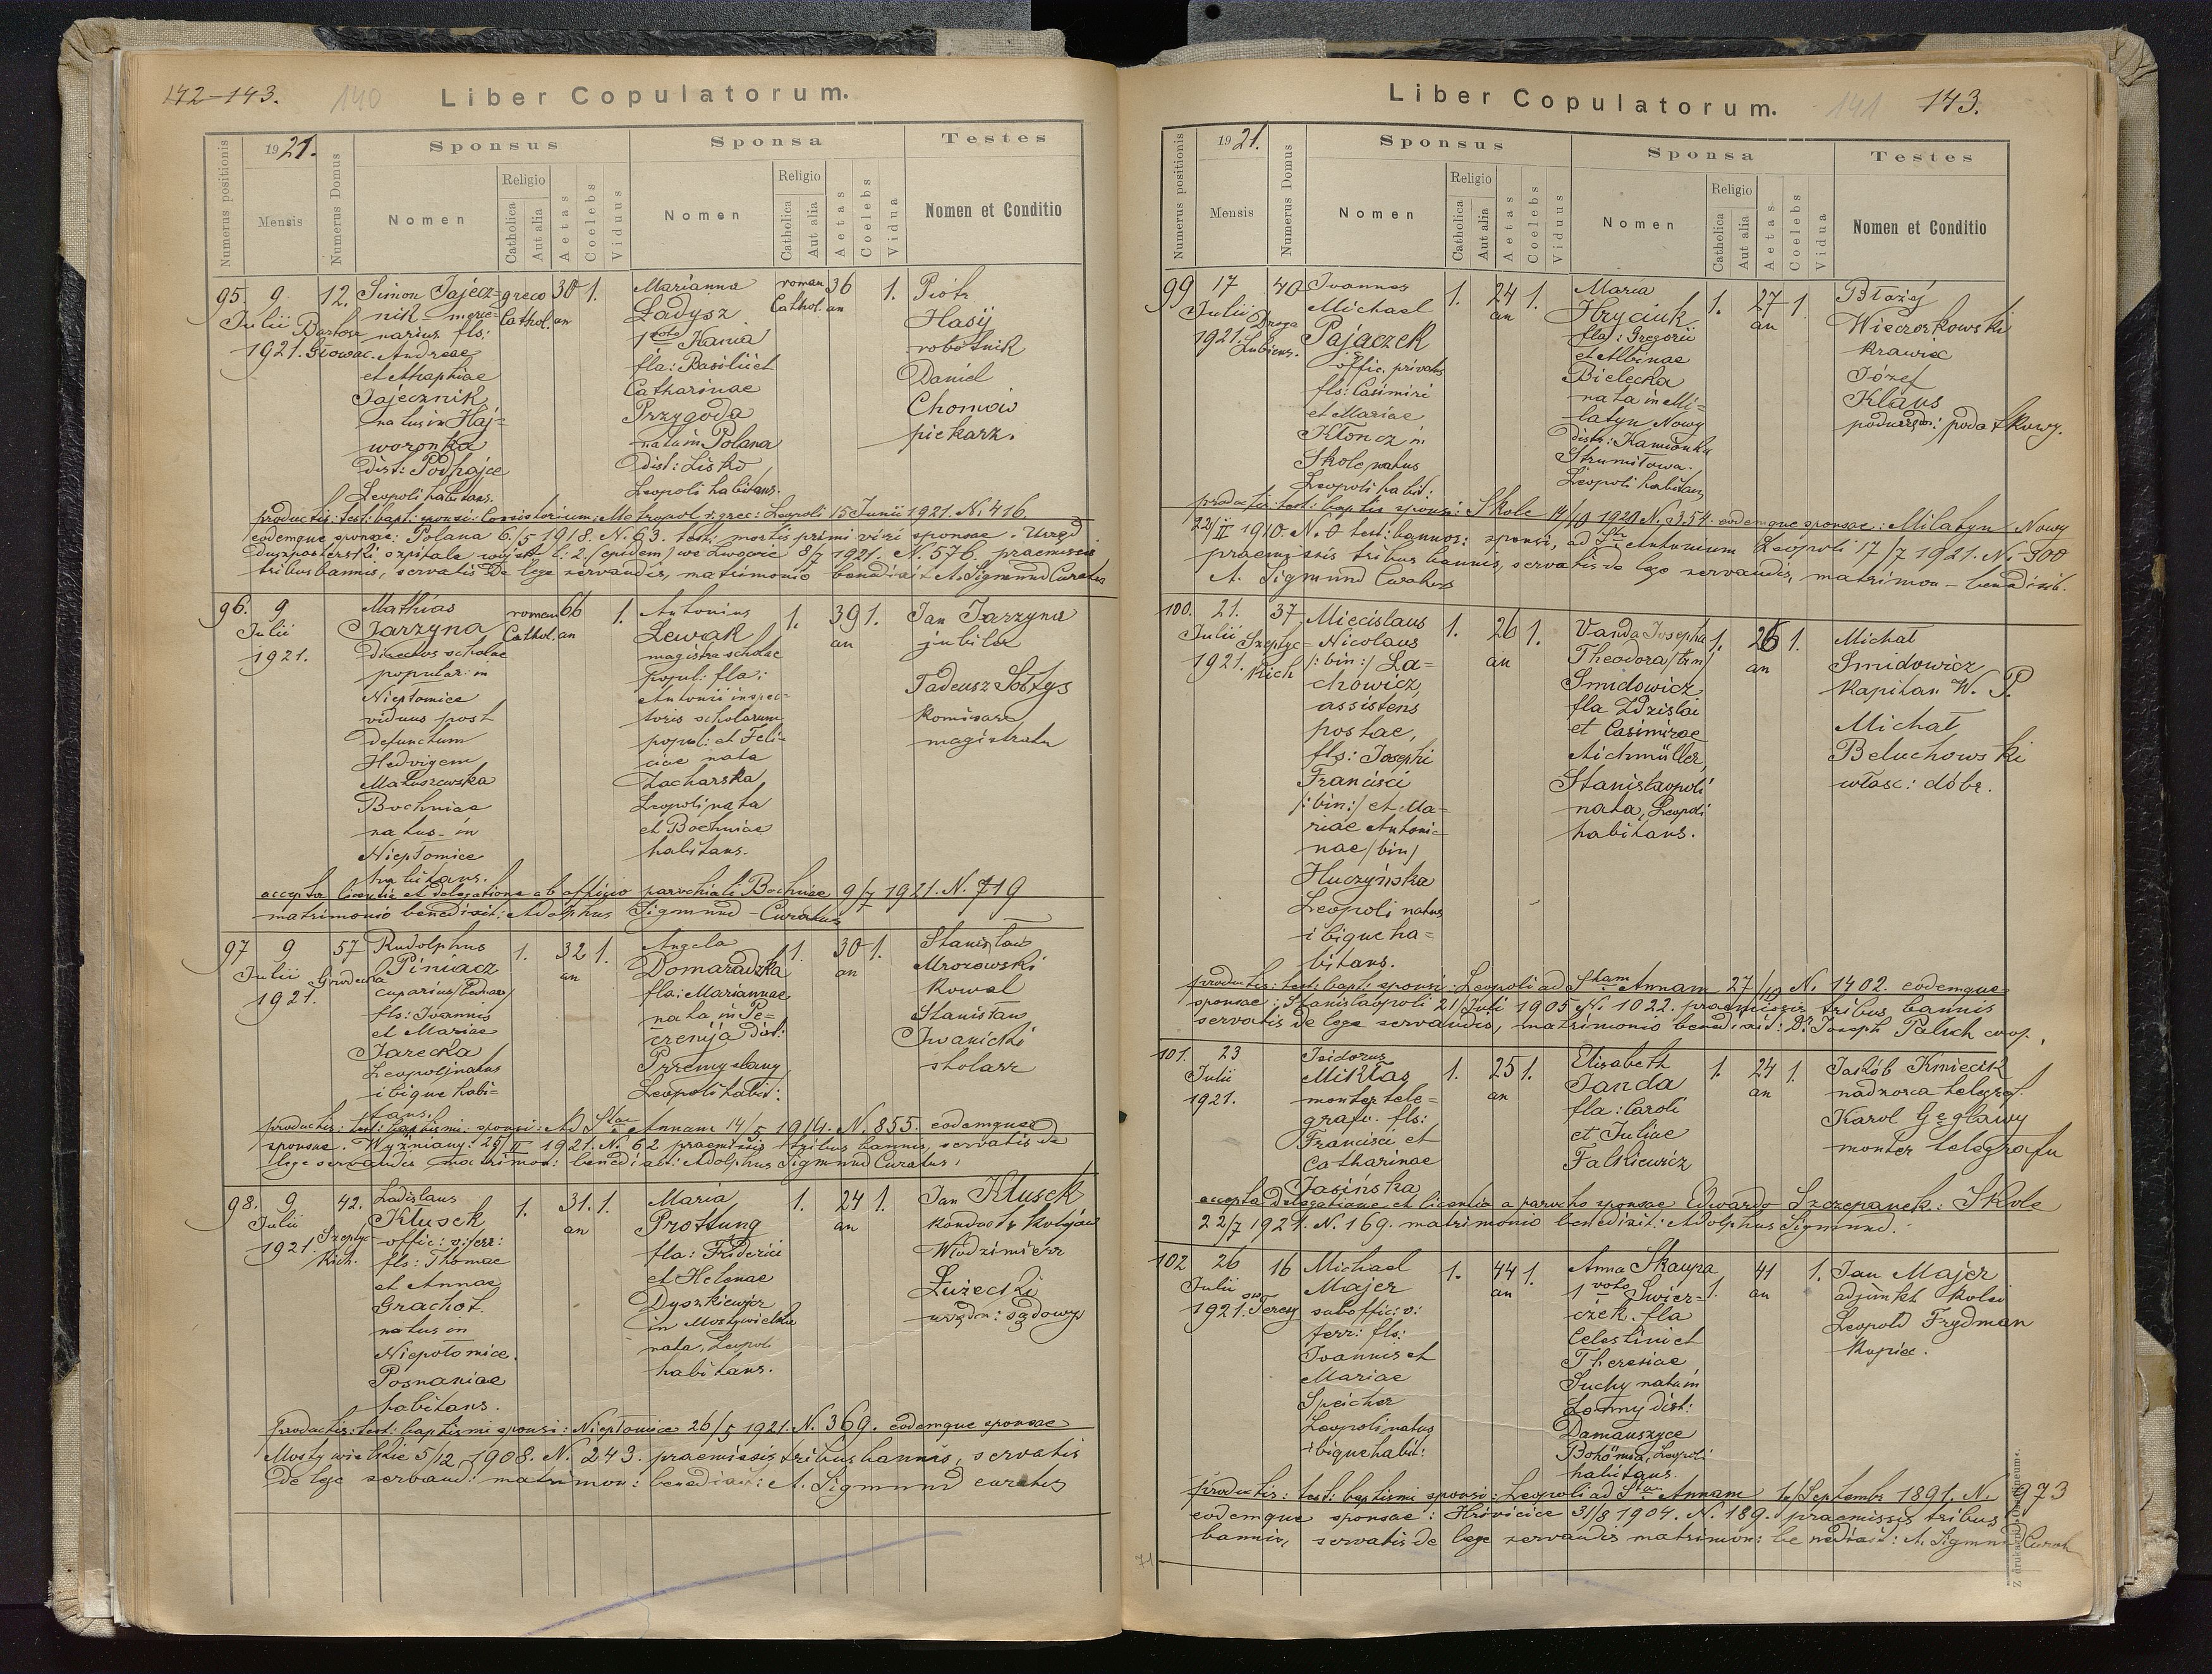 142-143.
140
Liber Copulatorum.
Numerus positionis
1921.
Mensis
Numerus Domus
Sponsus
Nomen
Religio
Catholica
Aut alia
Aetas
Coelebs
Viduus
Sponsa
Nomen
Religio
Catholica
Aut alia
Aetas
Coelebs
Vidua
Testes
Nomen et Conditio
95.
9
Julii
1921.
12.
Bartosz
Głowac.
Simon Jajecz-
nik - merce-
narius fls:
Andreae
et Agaphiae
Jajecznik
natus in Haj-
woronka
dist: Podhajce
Leopoli habitans.
greco
Cathol.
30
an
1.
Marianna
Ładysz
1 voto Kania
fla: Basilii et
Catharinae
Przygoda
nata in Polana
dist: Lisko
Leopoli habitans.
roman
Cathol.
36
an
1.
Piotr
Hasij
robotnik
Daniel
Chomow
piekarz.
productis: test: bapt: sponsi: Consistorium: Metropol. r. grec: Leopoli 15 Junii 1921. N. 416
eodemque sponsae: Polana 6/5 1918. N. 63. test: mortis primi viri sponsae. Urząd
duszpasterski szpitala wojsk l: 2. (epidem) we Lwowie 8/7 1921. N. 576. praemissis
tribus bannis, servatis de lege servandis, matrimonio benedixit A. Sigmund Curatus
96.
9
Julii
1921.
Mathias
Jarzyna
directus scholae
popular: in
Niepłomice
viduus post
defunctum
Hedvigem
Matuszewska
Bochniae
natus in
Niepłomice
habitans.
roman
Cathol.
66
an
1.
Antonina
Lewak
magistra scholae
popul: fla:
Antonii inspec-
toris scholarum
popul: et Feli-
ciae nata
Zacharska
Leopoli nata
et Bochniae
habitans.
1.
39
an
1.
Jan Jarzyna
jubiler
Tadeusz Sołtys
komisarz
magistratu
accepta licentia et delegatione ab officio parochiali Bochniae 9/7 1921. N. 719
matrimonio benedixit: Adolphus Sigmund - Curatus
97
9
Julii
1921.
57
Gródecka
Rudolphus
Piniacz
cuparius/Bednarz/
fls: Joannis
et Mariae
Jarecka
Leopoli natus
ibique habi-
tans.
1.
32
an
1.
Angela
Domaradzka
fla: Mariannae
nata in Pe-
czenija Dist:
Przemyslany
Leopoli habit:
1.
30
an
1.
Stanisław
Mrozowski
kowal
Stanisław
Iwanicki
stolarz
productis: test: baptismi: sponsi: Ad Stam Annam 14/5 1914. N. 855. eodemque
sponsae. Wyżniany: 25/II 1921. N. 62 praemissis tribus bannis, servatis de
lege servandis matrimon: benedixit: Adolphus Sigmund Curatus.
98.
9
Julii
1921.
42.
Szeptyc-
kich.
Ladislaus
Kłusek
offic: v: ferr:
fls: Thomae
et Annae
Grochot
natus in
Niepołomice.
Posnaniae
habitans.
1.
31.
an
1.
Maria
Prottung
fla: Friderici
et Helenae
Dyszkiewicz
in Mosty wielkie
nata, Leopoli
habitans.
1.
24
an
1.
Jan Kłusek
kondukt. kolejow
Włodzimierz
Łużecki
urzędn: sądowy
productis: test: baptismi sponsi: Niepłomice 26/5 1921. N. 369. eodemque sponsae
Mosty wielkie 5/12 1908. N. 243. praemissis tribus bannis, servatis
de lege servand: matrimon: benedixit: A. Sigmund curatus
Liber Copulatorum.
141
143.
Numerus positionis
1921.
Mensis
Numerus Domus
Sponsus
Nomen
Religio
Catholica
Aut alia
Aetas
Coelebs
Viduus
Sponsa
Nomen
Religio
Catholica
Aut alia
Aetas
Coelebs
Vidua
Testes
Nomen et Conditio
99
17
Julii
1921.
40
Droga
Lubiens.
Joannes
Michael
Pajączek
offic. privatus
fls: Casimiri
et Mariae
Kłoncz in
Skole natus
Leopoli habit:
1.
24
an
1.
Maria
Hryciuk
fla: Gregorii
et Albinae
Bielecka
nata in Mi-
latyn Nowy
distr: Kamionka
Strumiłowa.
Leopoli habitans
1.
27
an
1
Błażej
Wieczorkowski
krawiec
Józef
Klaus
podurzędn: podatkowy.
productis: test: baptis: sponsi: Skole 14/10 1920 N. 354. eodemque sponsae: Milatyn Nowy
22/II 1910. N. 0 test: bannor: sponsi, ad Sti Antonium Leopoli 17/7 1921. N. 300
praemissis tribus bannis, servatis de lege servandis, matrimon - benedixit.
A. Sigmund Curatus
100.
21.
Julii
1921.
37
Szeptyc-
kich
Miecislaus
Nicolaus
/:bin:/ La-
chowicz,
assistens
postae,
fls: Josephi
Francisci
/:bin:/ et Ma-
riae Antoni-
nae /bin/
Huczyńska
Leopoli natus
ibique ha-
bitans.
1.
26
an
1.
Vanda Josepha
Theodora /trin/
Smidowicz
fla Zdzislai
et Casimirae
Aichmüller,
Stanislaopoli
nata, Leopoli
habitans.
1.
26
an
1.
Michał
Smidowicz
kapitan W. P.
Michał
Beluchowski
właśc: dóbr.
productis: test: bapt: sponsi: Leopoli ad Stam Annam 27/10 N. 1402. eodemque
sponsae: Stanislaopoli 21/Juli 1905 N. 1022. praemissis tribus bannis
servatis de lege servandis, matrimonio benedixit: Dr. Joseph Paluch coop.
101.
23
Julii
1921.
Isidorus
Mikłas
monter tele-
grafu. fls:
Francisci et
Catharinae
Jasińska
1.
25
an
1.
Elisabeth
Janda
fla: Caroli
et Juliae
Falkiewicz
1.
24
an
1.
Jakób Kmiecik
nadzorca telegraf.
Karol Gęglawy
monter telegrafu
accepta delegatione et licentia a parocho sponsae Edwardo Szczepanek: Skole
22/7 1921. N. 169. matrimonio benedixit: Adolphus Sigmund.
102
26
Julii
1921.
16
św.
Teresy
Michael
Majer
suboffic: v:
ferr: fls:
Joannis et
Mariae
Speicher
Leopoli natus
ibique habit:
1.
44
an
1.
Anna Skaupa
1 voto Swier-
czek. fla
Celestini et
Theresiae
Suchy nata in
Lonny dist:
Damauszyce
Bohömia, Leopoli
habitans.
1.
41
an
1.
Jan Majer
adjunkt kolei
Leopold Frydman
kupiec.
productis: test: baptismi sponsi: Leopoli ad Stam Annam 16/Septembr 1891. N. 973
eodemque sponsae: Hrivicice 31/8 1904. N. 189. praemissis tribus
bannis, servatis de lege servandis matrimon: benedixit: A. Sigmund Curat
71